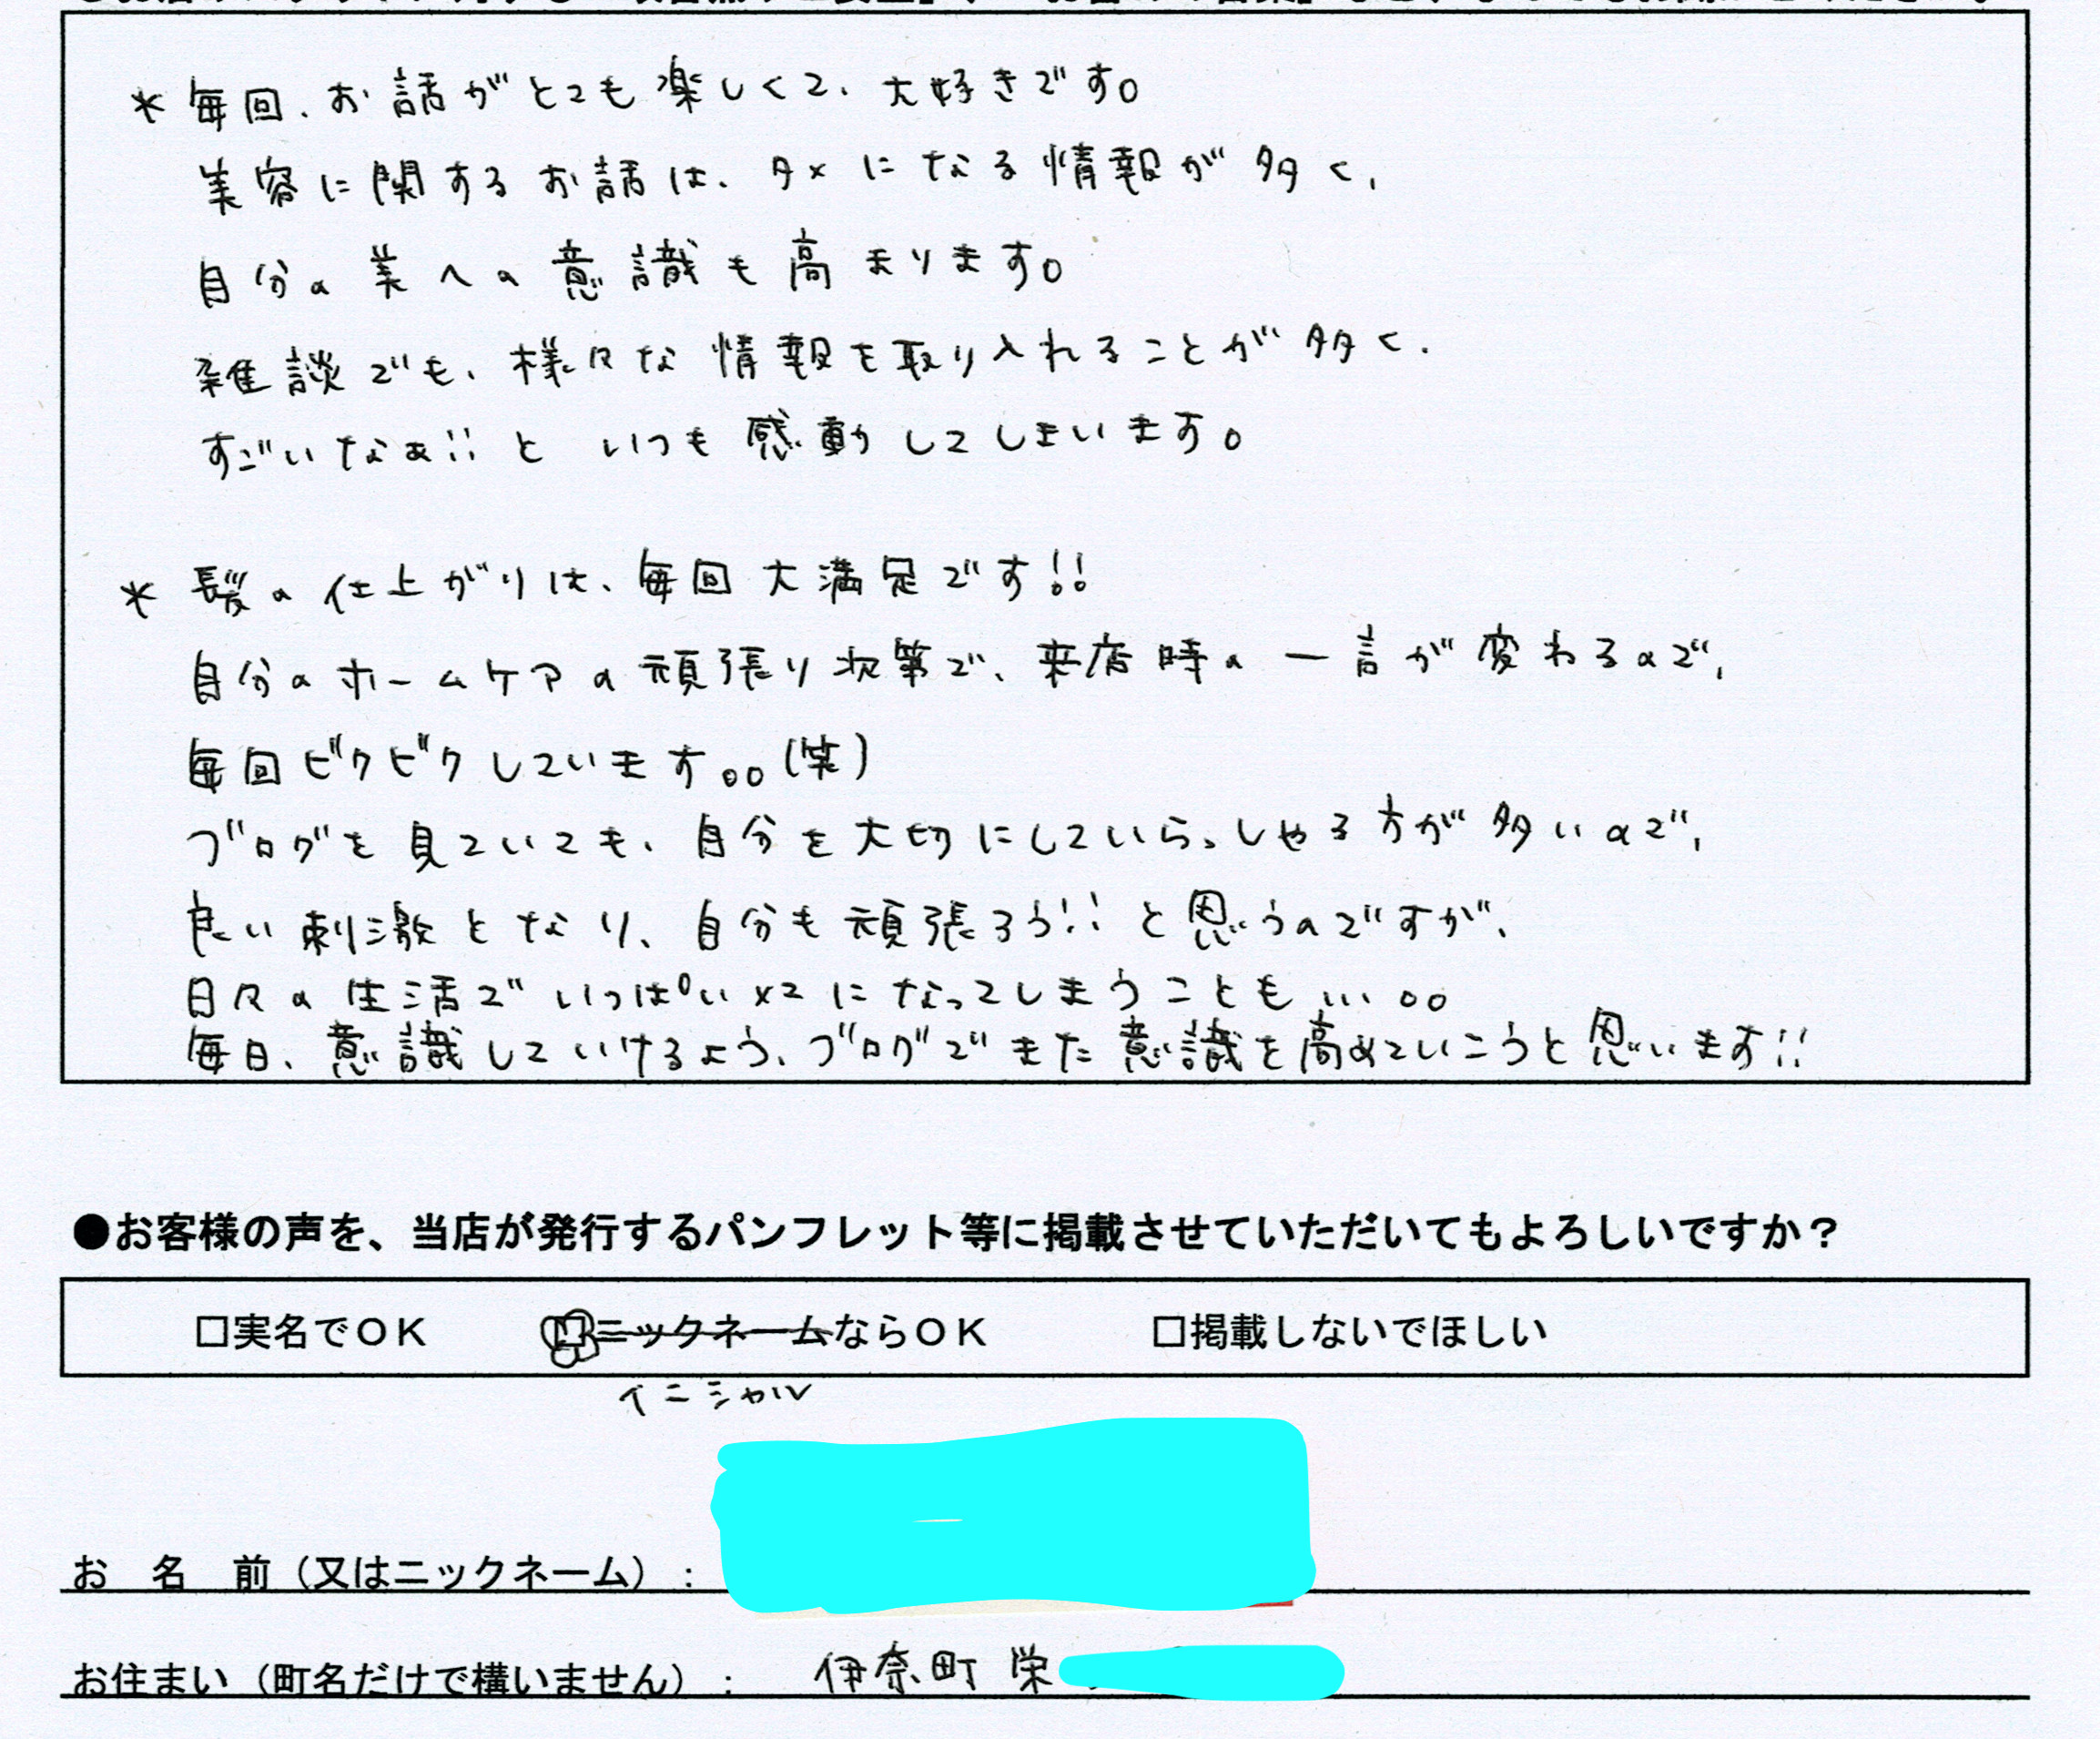 ＊毎回、お話がとても楽しくて、大好きです。
美容に関するお話は、タメになる情報が多く、
自分の美への意識も高まります。
雑談でも、様々な情報を取り入れることが多く、
すごいなぁ!!と いつも感動してしまいます。
＊髪の仕上がりは、毎回大満足です!!
自分のホームケアの頑張り次第で、来店時の一言が変わるので、
毎回ビクビクしています。。(笑)
ブログを見ていても、自分を大切にしていらっしゃる方が多いので、
良い刺激となり、自分も頑張ろう!!と思うのですが、
日々の生活でいっぱい×2になってしまうことも...。。
毎日、意識していけるよう、ブログでまた意識を高めていこうと思います!!
●お客様の声を、当店が発行するパンフレット等に掲載させていただいてもよろしいですか？
□実名でＯＫ □ニックネームならＯＫ □掲載しないでほしい
イニシャル
お　名　前（又はニックネーム）：
お住まい（町名だけで構いません）： 伊奈町 栄